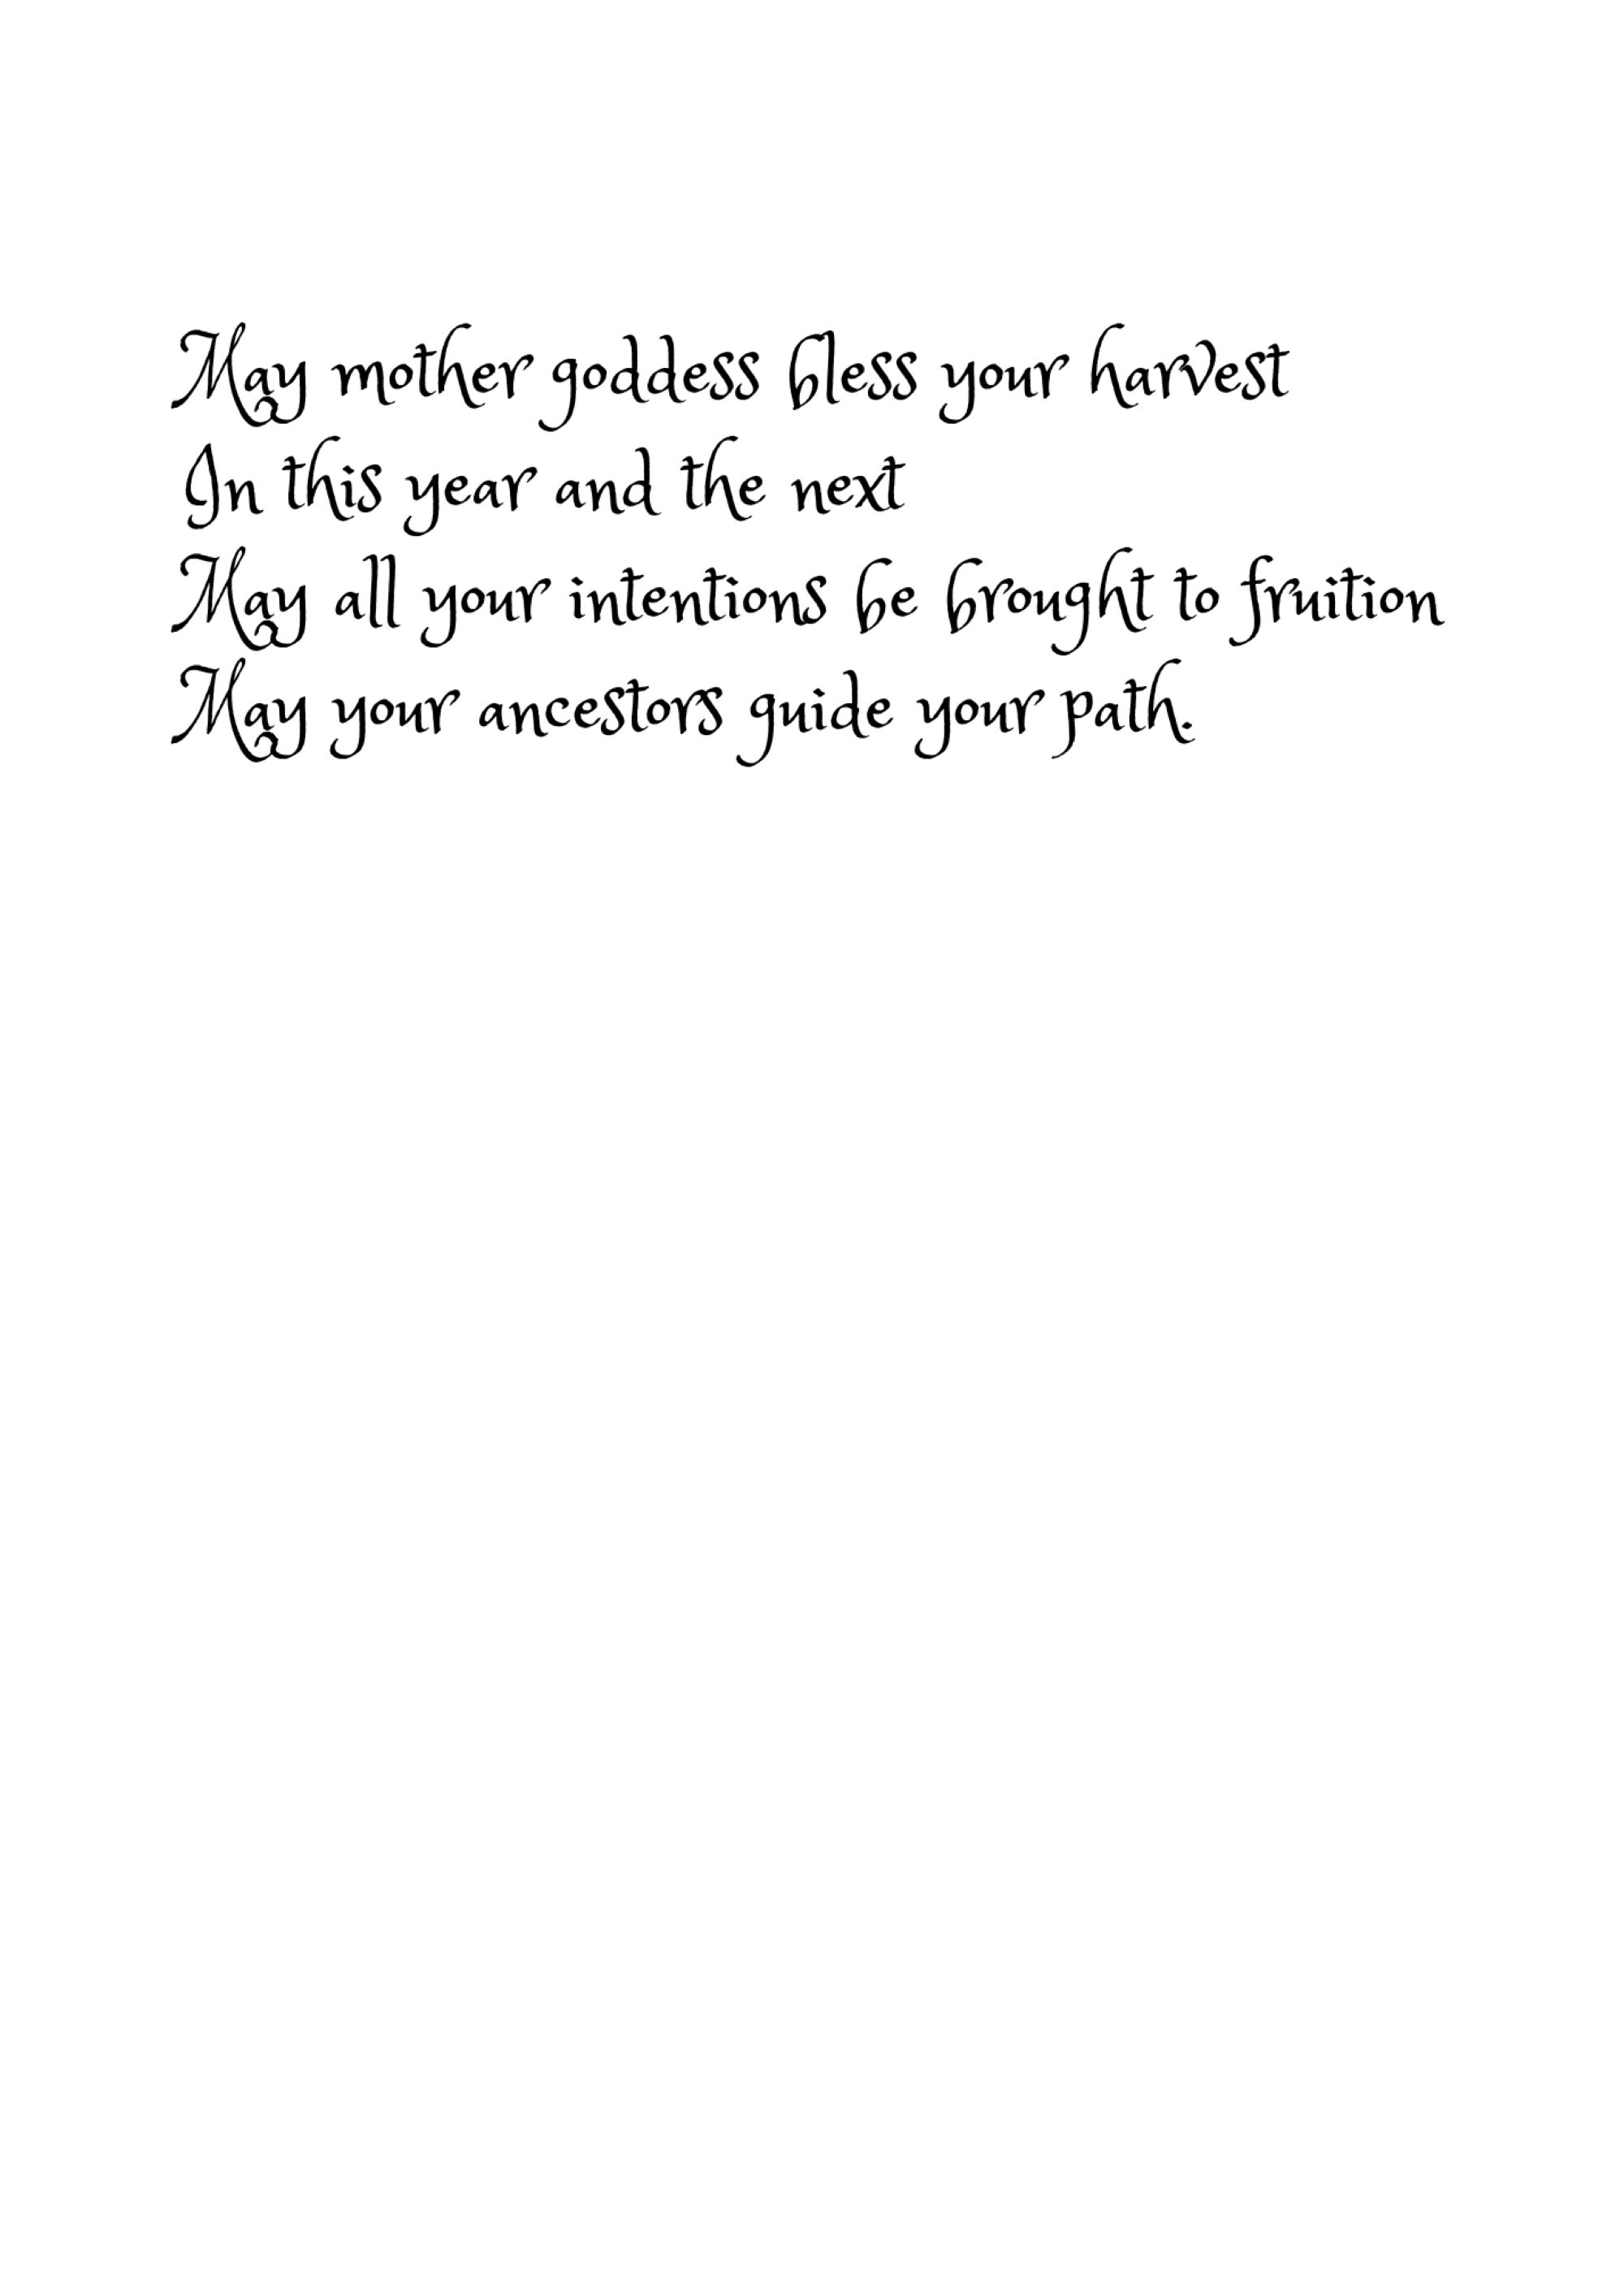 May mother goddess bless your harvest
In this year and the next
May all your intentions be brought to fruition
May your ancestors guide your path.